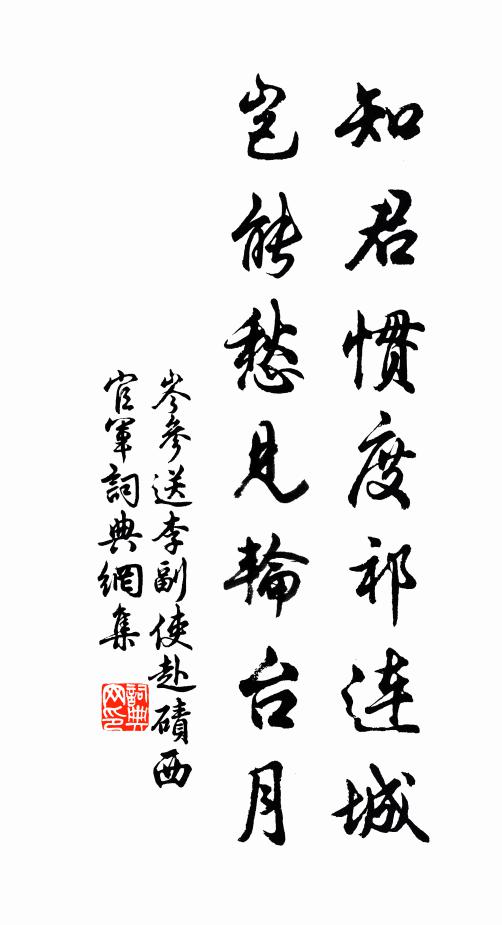 知君惯度祁连城
岂能愁见轮台月
岑参送李副使赴碛西
官军词典网集
词典网印